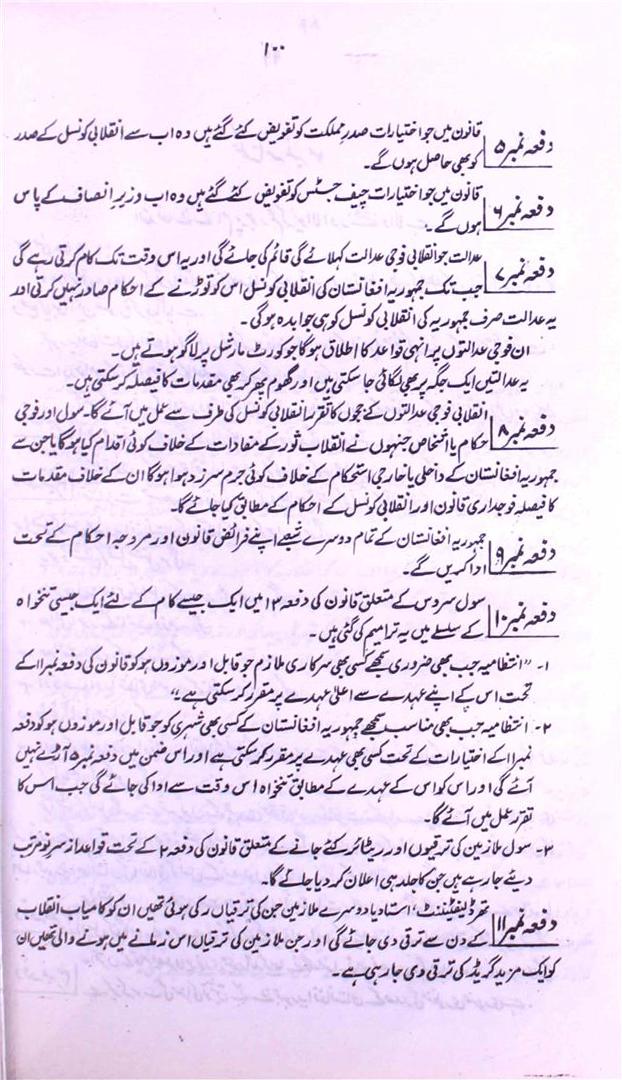 ۱۰۰
دفعہ نمبر ۵ قانون میں جو اختیارات صدر مملکت کو تفویض کئے گئے ہیں وہ اب سے انقلابی کونسل کے صدر
کو بھی حاصل ہوں گے۔
دفعہ نمبر ۶ قانون میں جو اختیارات چیف جسٹس کو تفویض کئے گئے ہیں وہ اب وزیر انصاف کے پاس
ہوں گے۔
دفعہ نمبر ۷ عدالت جو انقلابی فوجی عدالت کہلائے گی قائم کی جائے گی اور یہ اس وقت تک کام کرتی رہے گی
جب تک جمہوریہ افغانستان کی انقلابی کونسل اس کو توڑنے کے احکام صادر نہیں کرتی اور
یہ عدالت صرف جمہوریہ کی انقلابی کونسل کو ہی جوابدہ ہوگی۔
ان فوجی عدالتوں پر انہی قواعد کا اطلاق ہوگا جو کورٹ مارشل پر لاگو ہوتے ہیں۔
یہ عدالتیں ایک جگہ پر بھی لگائی جا سکتی ہیں اور گھوم پھر کر بھی مقدمات کا فیصلہ کر سکتی ہیں۔
دفعہ نمبر ۸ انقلابی فوجی عدالتوں کے ججوں کا تقرر انقلابی کونسل کی طرف سے عمل میں آئے گا۔ سول اور فوجی
حکام یا اشخاص جنہوں نے انقلاب ثور کے مفادات کے خلاف کوئی اقدام کیا ہوگا یا جن سے
جمہوریہ افغانستان کے داخلی یا خارجی استحکام کے خلاف کوئی جرم سرزد ہوا ہوگا ان کے خلاف مقدمات
کا فیصلہ فوجداری قانون اور انقلابی کونسل کے احکام کے مطابق کیا جائے گا۔
دفعہ نمبر ۹ جمہوریہ افغانستان کے تمام دوسرے شعبے اپنے فرائض قانون اور مروجہ احکام کے تحت
ادا کریں گے۔
دفعہ نمبر ۱۰ سول سروس کے متعلق قانون کی دفعہ ۱۳ میں ایک جیسے کام کے لئے ایک جیسی تنخواہ
کے سلسلے میں یہ ترامیم کی گئی ہیں۔
۱- "انتظامیہ جب بھی ضروری سمجھے کسی بھی سرکاری ملازم جو قابل اور موزوں ہو کو قانون کی دفعہ نمبر ۱۱ کے
تحت اس کے اپنے عہدے سے اعلیٰ عہدے پر مقرر کر سکتی ہے۔"
۲- انتظامیہ جب بھی مناسب سمجھے جمہوریہ افغانستان کے کسی بھی شہری کو جو قابل اور موزوں ہو کو دفعہ
نمبر ۱۱ کے اختیارات کے تحت کسی بھی عہدے پر مقرر کر سکتی ہے اور اس ضمن میں دفعہ نمبر ۵ آڑے نہیں
آئے گی اور اس کو اس کے عہدے کے مطابق تنخواہ اس وقت سے ادا کی جائے گی جب اس کا
تقرر عمل میں آئے گا۔
۳- سول ملازمین کی ترقیوں اور ریٹائر کئے جانے کے متعلق قانون کی دفعہ ۲ کے تحت قواعد از سر نو مرتب
دیئے جا رہے ہیں جن کا جلد ہی اعلان کر دیا جائے گا۔
دفعہ نمبر ۱۱ تھرڈ لیفٹیننٹ، استاد یا دوسرے ملازمین جن کی ترقیاں رکی ہوئی تھیں ان کو کامیاب انقلاب
کے دن سے ترقی دی جائے گی اور جن ملازمین کی ترقیاں اس زمانے میں ہونے والی تھیں ان
کو ایک مزید گریڈ کی ترقی دی جا رہی ہے۔